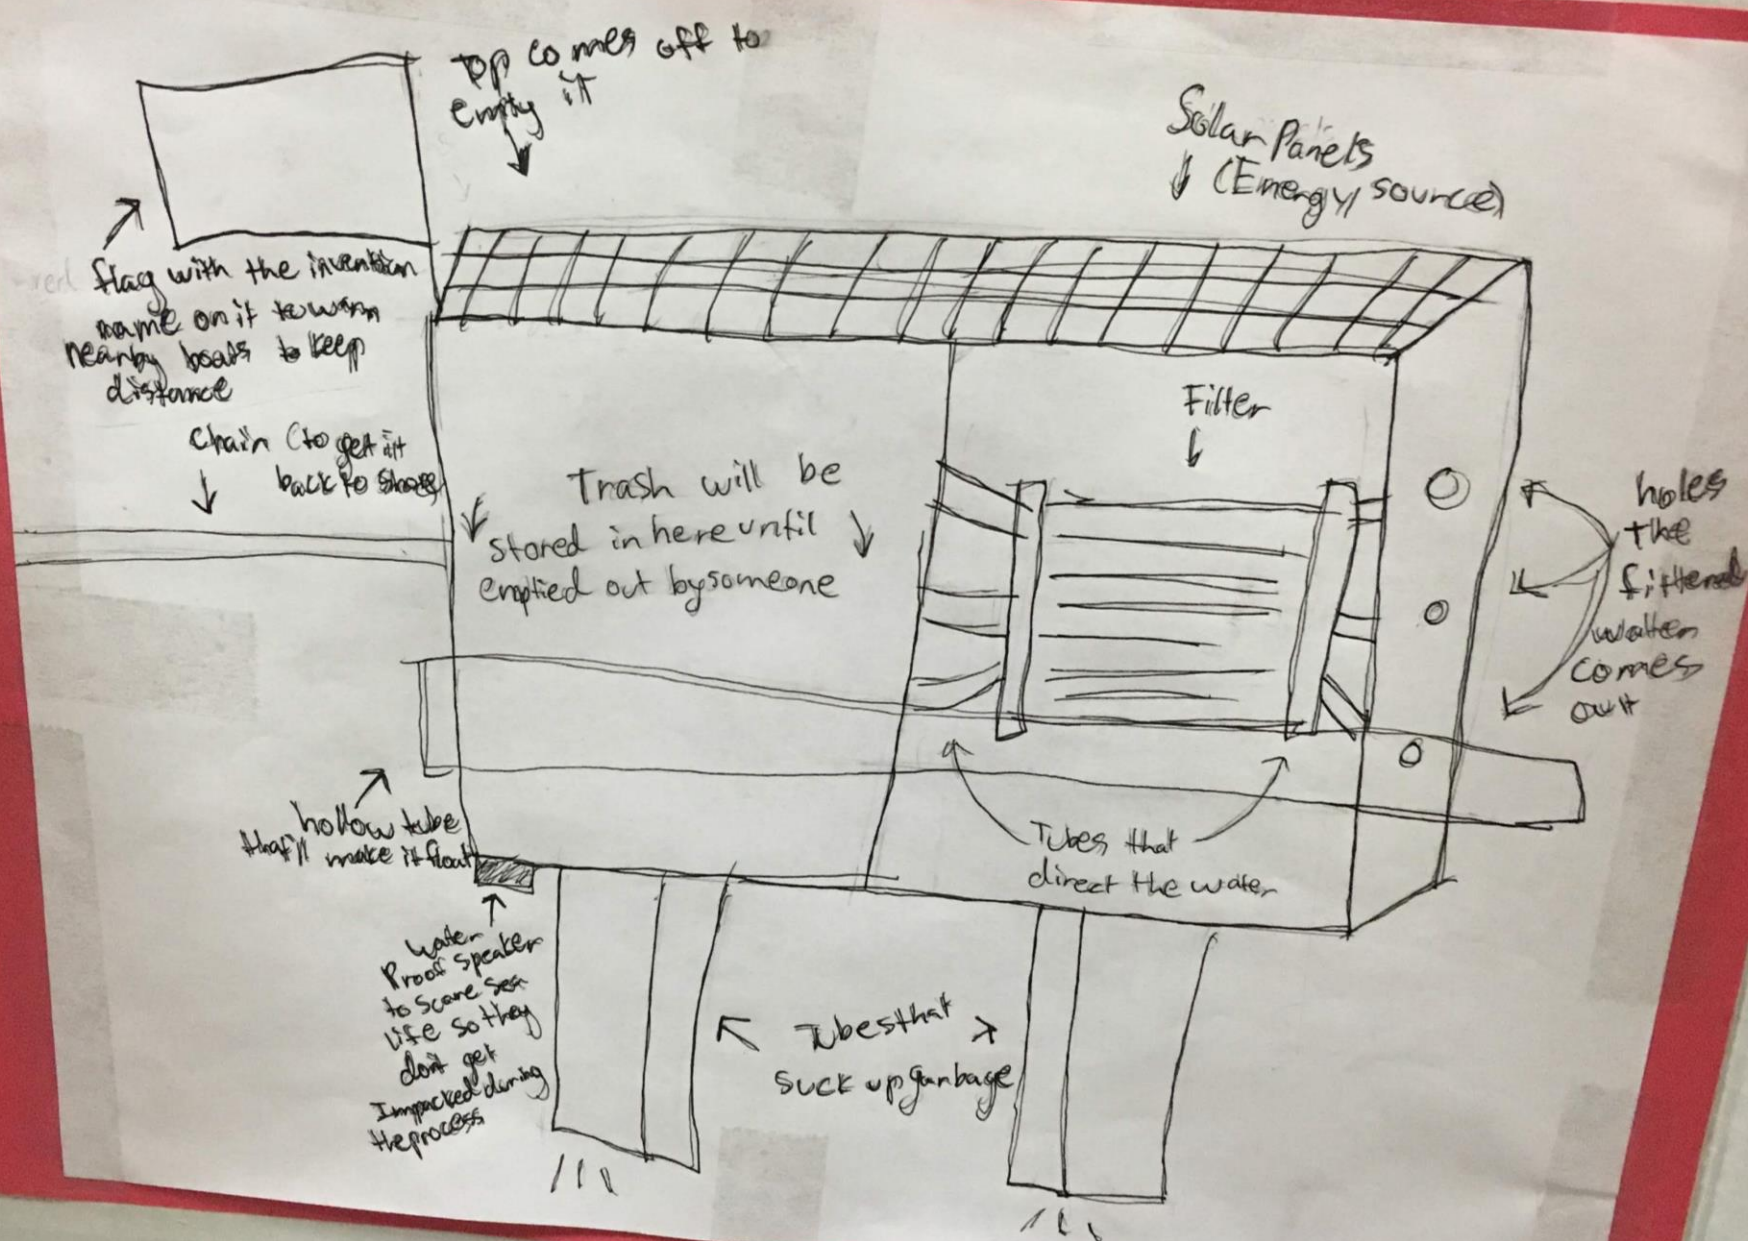 Top comes off to
empty it
Solar Panels
(Energy source)
flag with the invention
name on it to warn
nearby boats to keep
distance
Chain (to get it
back to shore)
Filter
Trash will be
stored in here until
emptied out by someone
holes
the
filtered
water
comes
out
hollow tube
that'll make it float
Tubes that
direct the water
Water
Proof speaker
to scare sea
life so they
don't get
Impacked during
the process
Tubes that
suck up garbage